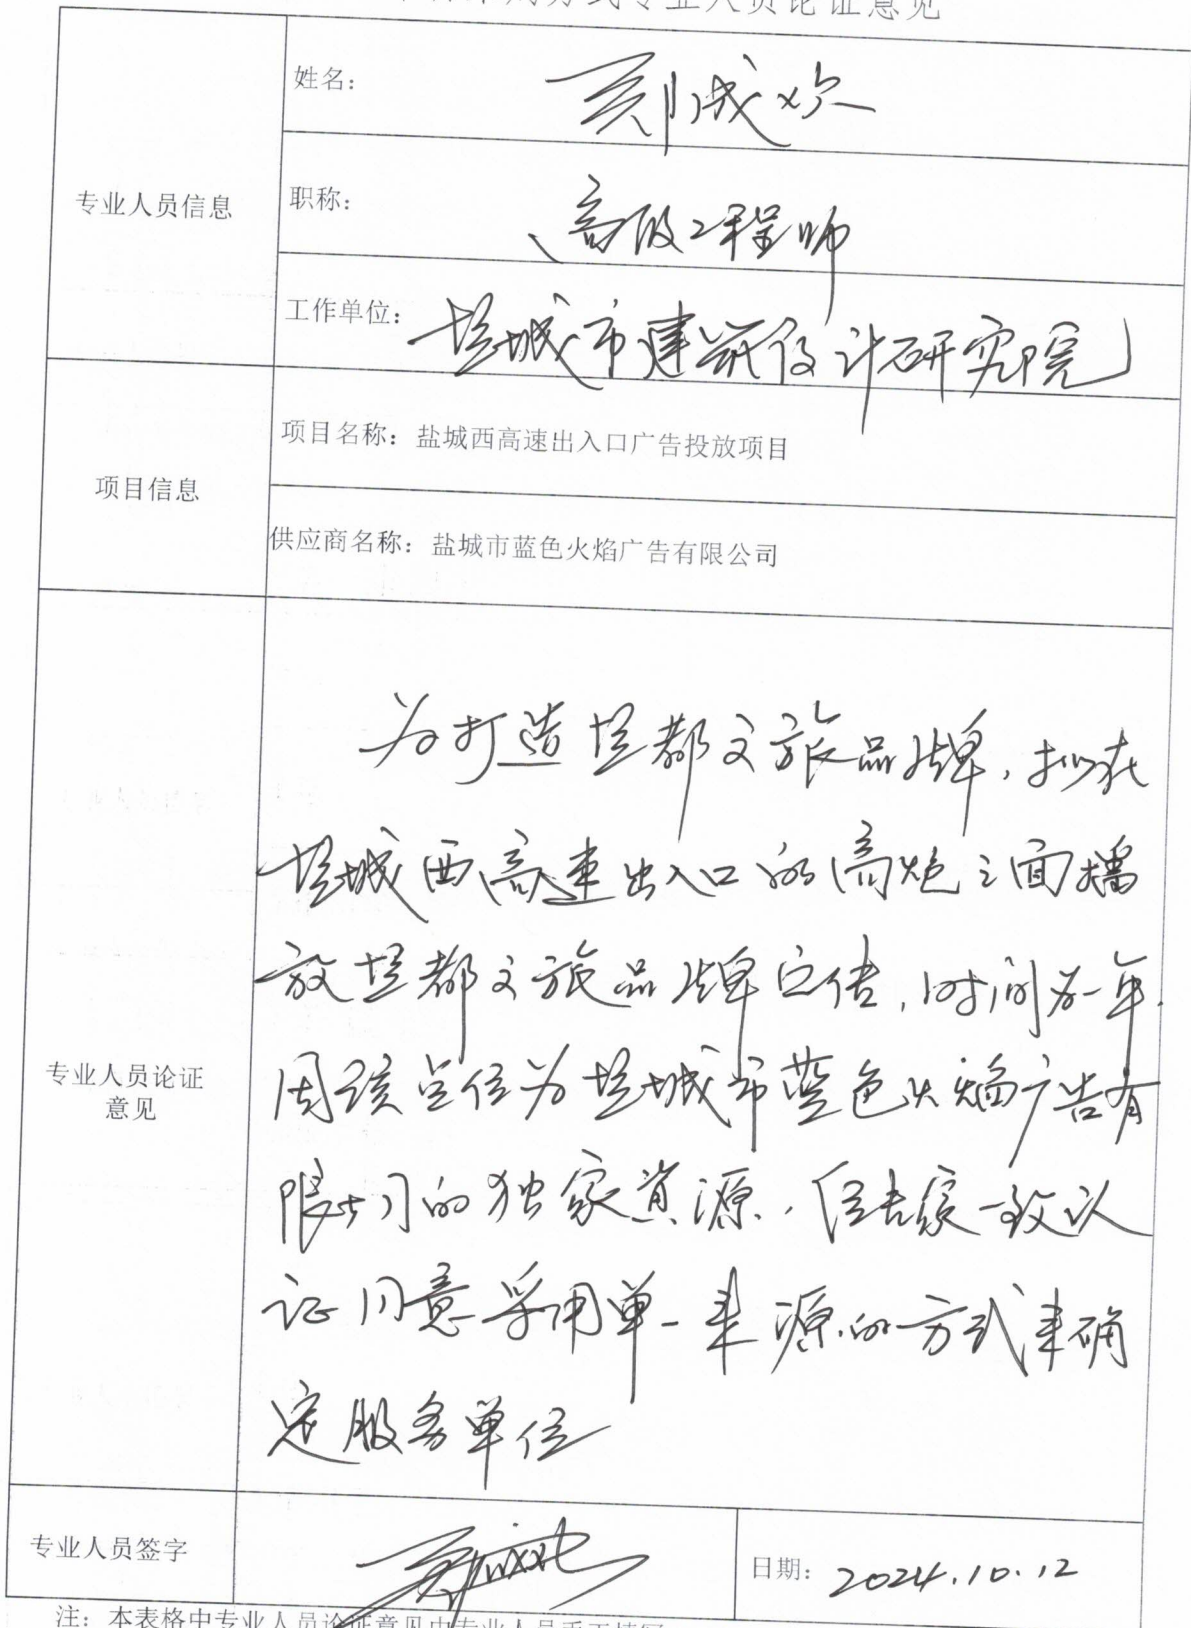 方式专业人员论证意见
专业人员信息
姓名：
郑成欢
职称：
高级工程师
工作单位：
盐城市建筑设计研究院
项目信息
项目名称：盐城西高速出入口广告投放项目
供应商名称：盐城市蓝色火焰广告有限公司
专业人员论证
意见
为打造盐都文旅品牌，拟在
盐城西高速出入口的高炮三面播
放盐都文旅品牌宣传，时间为一年.
因该点位为盐城市蓝色火焰广告有
限公司的独家资源，经专家一致认
证同意采用单一来源的方式来确
定服务单位
专业人员签字
日期：2024.10.12
注：本表格中专业人员论证意见由专业人员手工填写